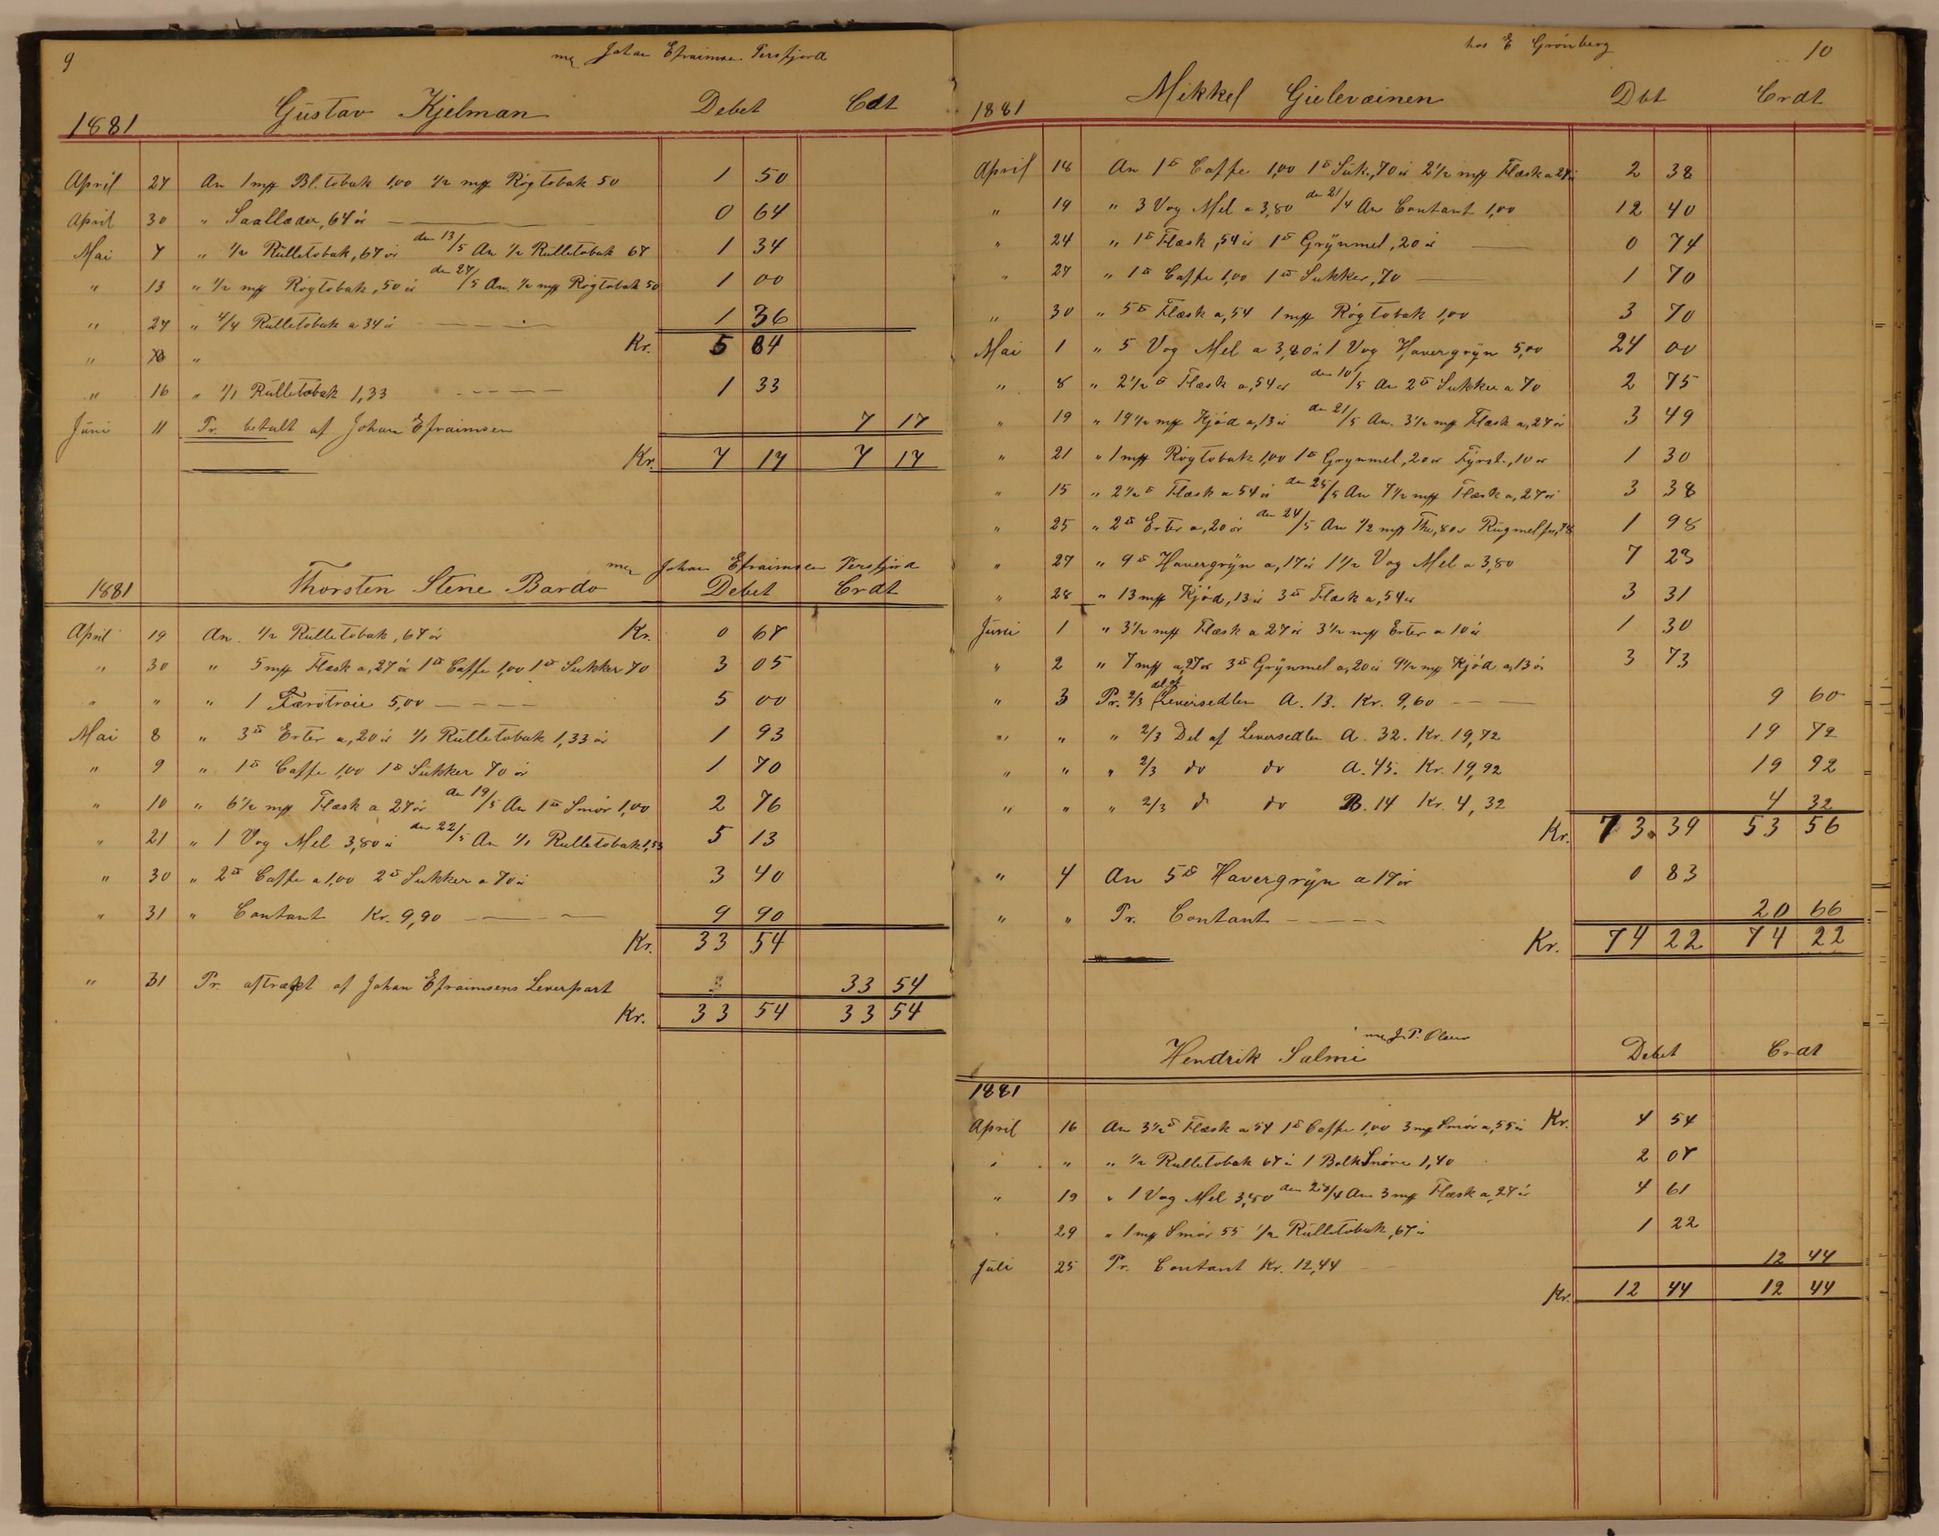 9
me Johan Efraimsen Persfjord
1881 Gustav Kjelman Debet Cdt
April 27 An 1 mff Bl. tobak 1,00 1/2 mff Røgtobak 50 1 50
April 30 " Saallæder, 64 ör 0 64
Mai 7 " 1/2 Rulletobak, 67 ör den 13/5 An 1/2 Rulletobak 67 1 34
" 13 " 1/2 mff Røgtobak, 50 ör den 27/5 An 1/2 mff Røgtobak 50 1 00
" 27 " 4/4 Rulletobak a 34 ö 1 36
" " Kr. 5 84
" 16 " 1/1 Rulletobak 1,33 1 33
Juni 11 Pr. betalt af Johan Efraimsen 7 17
Kr. 7 17 7 17
me Johan Efraimsen Persfjord
1881 Thorsten Stene Bardo Debet Crdt
April 19 An 1/2 Rulletobak, 67 ör Kr. 0 67
" 30 " 5 mff Flæsk a, 27 ör 1 ℔ Caffe 1,00 1 ℔ Sukker 70 3 05
" " " 1 Færötröie 5,00 5 00
Mai 8 " 3 ℔ Erter a, 20 ör 1/1 Rulletobak 1,33 ör 1 93
" 9 " 1 ℔ Caffe 1,00 1 ℔ Sukker 70 ör 1 70
" 10 " 6 1/2 mff Flæsk a 27 ör den 19/5 An 1 ℔ Smör 1,00 2 76
" 21 " 1 Vog Mel 3,80 ö den 22/5 An 1/1 Rulletobak 1,33 5 13
" 30 " 2 ℔ Caffe a 1,00 2 ℔ Sukker a 70 ö 3 40
" 31 " Contant Kr. 9,90 9 90
Kr. 33 54
" 31 Pr. aftræget af Johan Efraimsens Leverpart 33 54
Kr. 33 54 33 54
hos E Grönberg 10
1881 Mikkel Gulevainen Dbt Crdt
April 18 An 1 ℔ Caffe 1,00 1 ℔ Suk., 70 ör 2 1/2 mff Flæsk a 27 ö 2 38
" 19 " 3 Vog Mel a 3,80 den 21/4 An Contant 1,00 12 40
" 24 " 1 ℔ Flæsk, 54 ör 1 ℔ Grynmel, 20 ör 0 74
" 27 " 1 ℔ Caffe 1,00 1 ℔ Sukker, 70 1 70
" 30 " 5 ℔ Flæsk a, 54 1 mff Røgtobak 1,00 3 70
Mai 1 " 5 Vog Mel a 3,80 ö 1 Vog Havergryn 5,00 24 00
" 8 " 2 1/2 ℔ Flæsk a, 54 ör den 10/5 An 2 ℔ Sukker a 70 2 75
" 19 " 19 1/2 mff Kjöd a, 13 ör den 21/5 An 3 1/2 mff Flæsk a, 27 ör 3 49
" 21 " 1 mff Røgtobak 1,00 1 ℔ Grynmel, 20 ör Fyrst., 10 ör 1 30
" 15 " 2 1/2 ℔ Flæsk a 54 ör den 25/5 An 7 1/2 mff Flæsk a, 27 ör 3 38
" 25 " 2 ℔ Erter a, 20 ör den 24/5 An 1/2 mff The, 80 ör Rugmel for, 78 1 98
" 27 " 9 ℔ Havergryn a, 17 ör 1 1/2 Vog Mel a 3,80 7 23
" 28 " 13 mff Kjöd, 13 ör 3 ℔ Flæsk a, 54 ör 3 31
Juni 1 " 3 1/2 mff Flæsk a 27 ör 3 1/2 mff Erter a 10 ör 1 30
" 2 " 7 mff a, 27 ör 3 ℔ Grynmel a, 20 ör 9 1/2 mff Kjöd a, 13 ör 3 73
" 3 Pr. 2/3 del af Leversedlen A. 13. Kr. 9,60 9 60
" " " 2/3 Del af Leversedlen A. 32. Kr. 19,72 19 72
" " " 2/3 do do A. 45. Kr. 19,92 19 92
" " " 2/3 do do B. 14 Kr. 4,32 4 32
Kr. 73 39 53 56
" 4 An 5 ℔ Havergryn a 17 ör 0 83
" " Pr. Contant 20 66
Kr. 74 22 74 22
me J. P. Olsen
Hendrik Salmi Debet Crdt
1881
April 16 An 3 1/2 ℔ Flæsk a 54 1 ℔ Caffe 1,00 3 mff Smör a, 55 ö Kr. 4 54
" " " 1/2 Rulletobak 67 ö 1 Balk Snöre 1,40 2 07
" 19 " 1 Vog Mel 3,80 den 27/4 An 3 mff Flæsk a, 27 ör 4 61
" 29 " 1 mff Smör 55 1/2 Rulletobak, 67 ö 1 22
Juli 25 Pr. Contant Kr. 12,44 12 44
Kr. 12 44 12 44